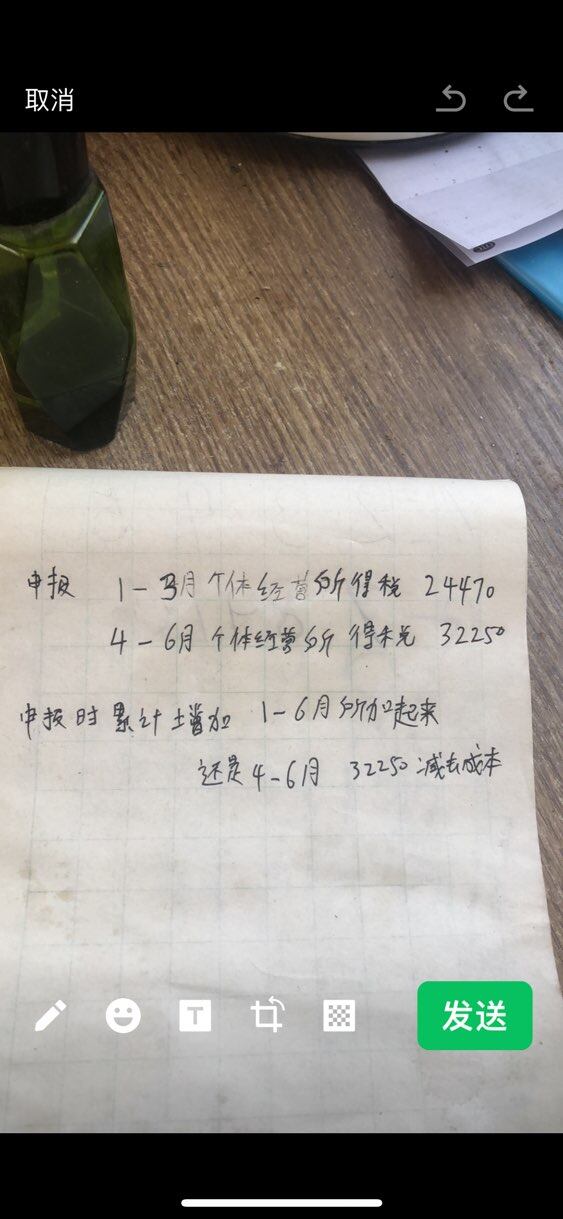 取消
申报 1-3月个体经营所得税 24470
4-6月个体经营所得税 32250
申报时累计增加 1-6月所加起来
还是4-6月 32250减去成本
T
发送